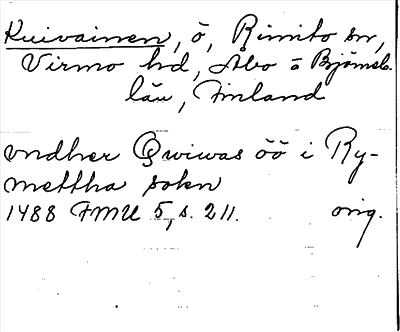 Kuivainen, ö, Rimito sn,
Virmo hd, Åbo o Björneb.
län, Finland
vndher Qwiwas öö i Ry-
mettha sokn
1488 FMU 5, s. 211. orig.